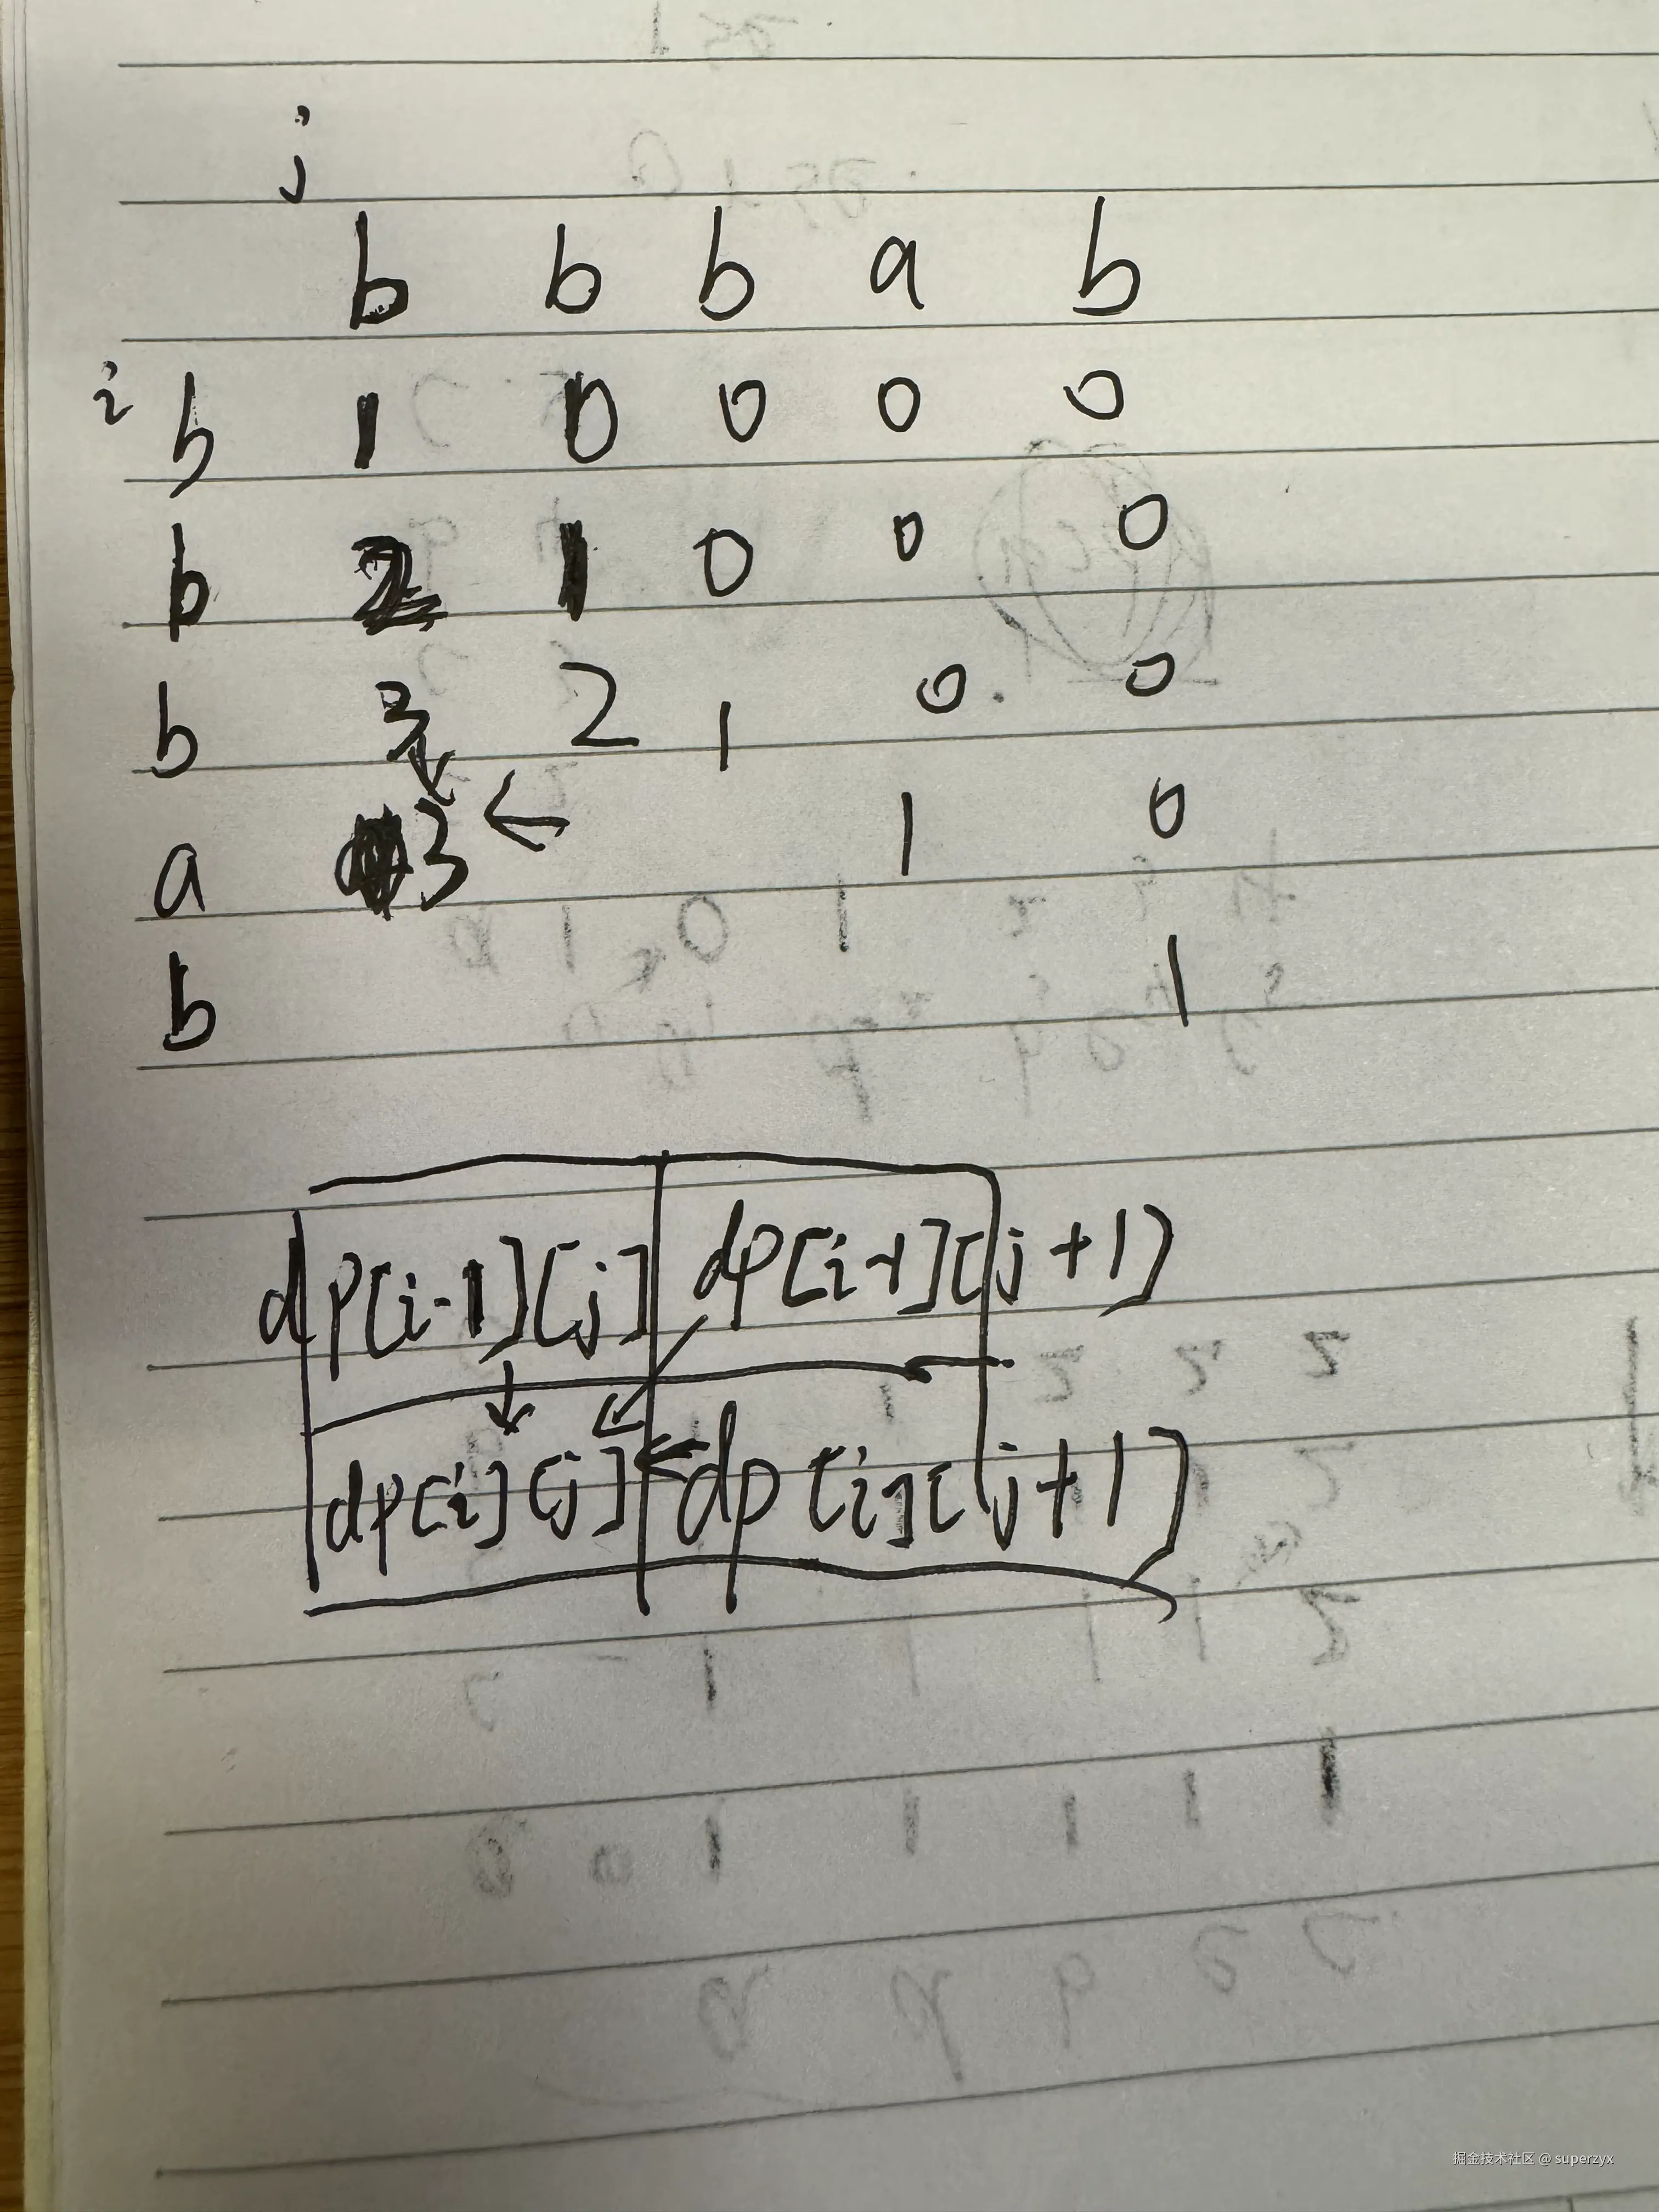 j
b b b a b
i b 1 0 0 0 0
b 2 1 0 0 0
b 3 2 1 0. 0
a 3 ← 1 0
b 1
dp[i-1][j] dp[i-1][j+1]
dp[i][j] dp[i][j+1]
掘金技术社区 @ superzyx